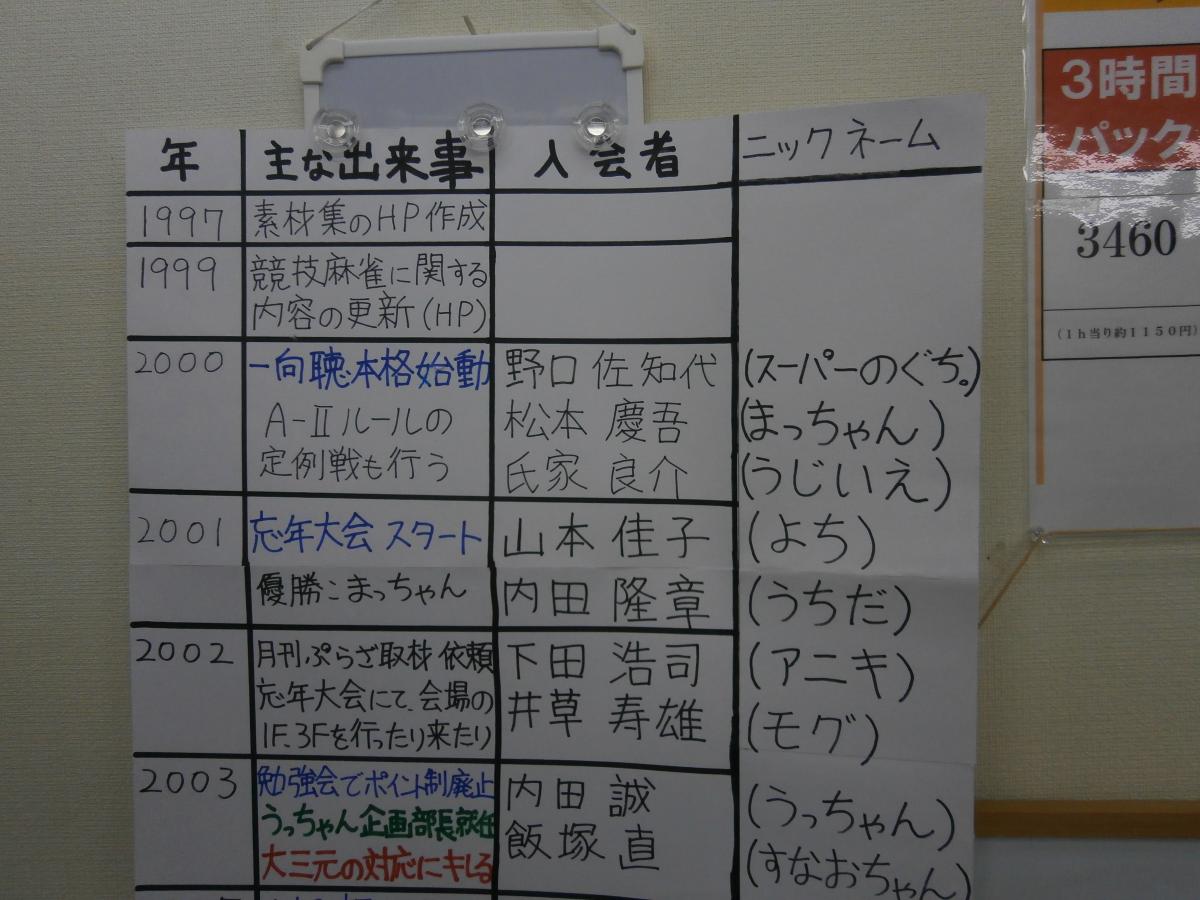 年 主な出来事 入会者 ニックネーム
1997 素材集のHP作成
1999 競技麻雀に関する
内容の更新(HP)
2000 一向聴本格始動 野口 佐知代 (スーパーのぐち。)
A-Ⅱルールの 松本 慶吾 (まっちゃん)
定例戦も行う 氏家 良介 (うじいえ)
2001 忘年大会 スタート 山本 佳子 (よち)
優勝:まっちゃん 内田 隆章 (うちだ)
2002 月刊ぷらざ取材依頼 下田 浩司 (アニキ)
忘年大会にて、会場の 井草 寿雄 (モグ)
1F、3Fを行ったり来たり
2003 勉強会でポイント制廃止 内田 誠 (うっちゃん)
うっちゃん企画部長就任 飯塚 直 (すなおちゃん)
大三元の対応にキレる
3時間
パック
3460
(1h当り約1150円)